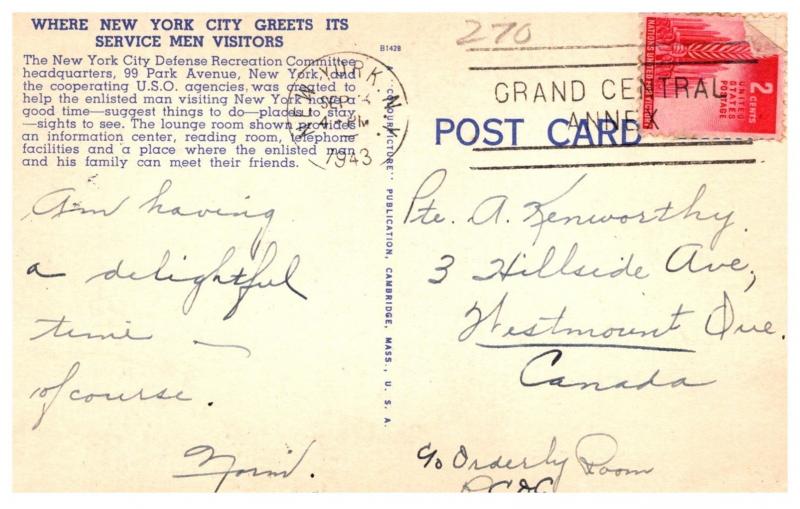 WHERE NEW YORK CITY GREETS ITS
SERVICE MEN VISITORS
The New York City Defense Recreation Committee
headquarters, 99 Park Avenue, New York, and
the cooperating U.S.O. agencies, was created to
help the enlisted man visiting New York have a
good time—suggest things to do—places to stay
—sights to see. The lounge room shown provides
an information center, reading room, telephone
facilities and a place where the enlisted man
and his family can meet their friends.
Am having
a delightful
time —
of course.
Norm.
B1428
A "COLOURPICTURE" PUBLICATION, CAMBRIDGE, MASS., U. S. A.
NEW YORK, N.Y.
SEP
1943
270
GRAND CENTRAL
ANNEX
2 CENTS
UNITED
STATES
POSTAGE
POST CARD
Pte. A. Kenworthy.
3 Hillside Ave,
Westmount Que.
Canada
c/o Orderly Room